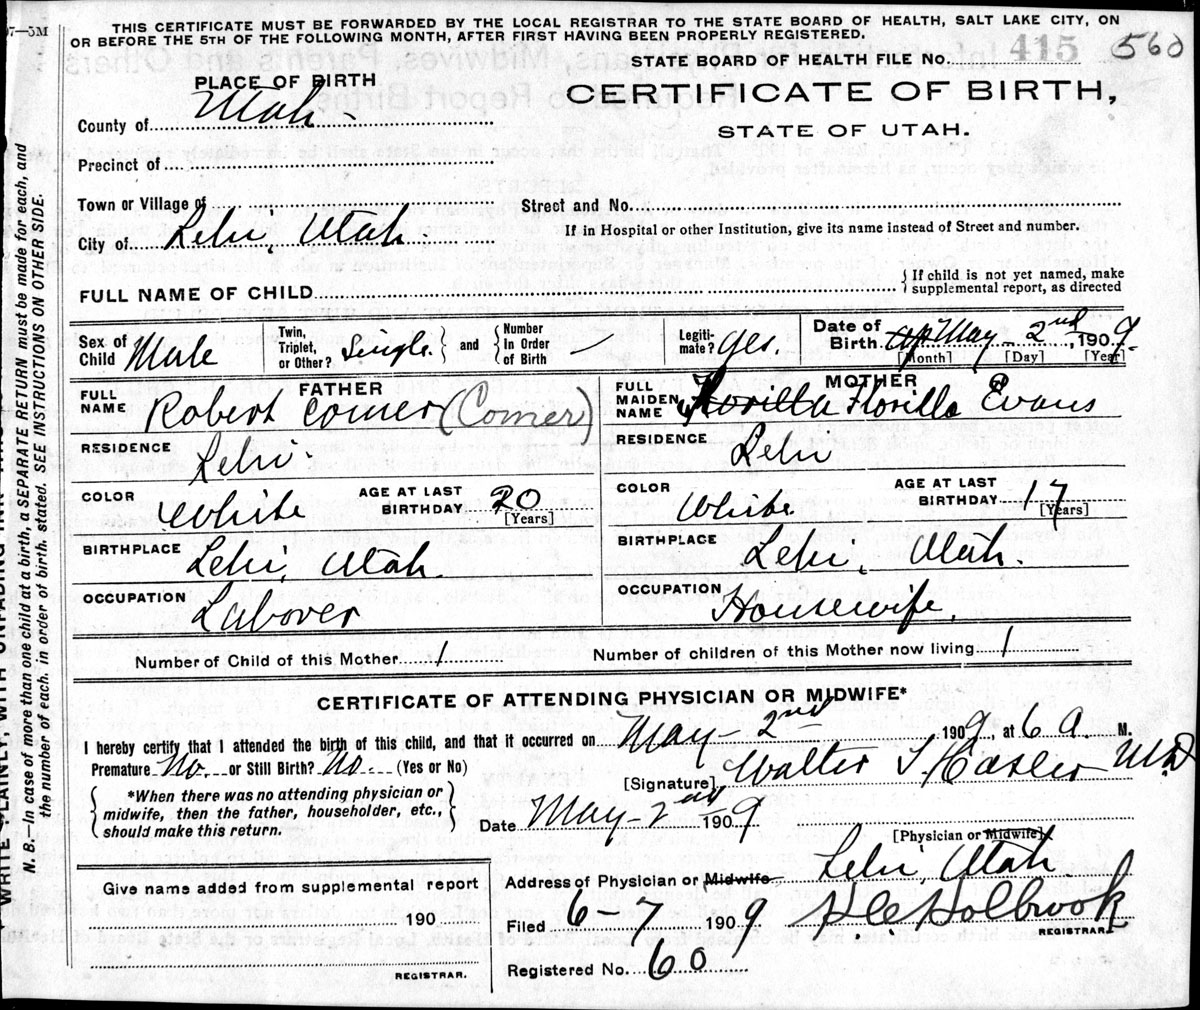 07—5M
THIS CERTIFICATE MUST BE FORWARDED BY THE LOCAL REGISTRAR TO THE STATE BOARD OF HEALTH, SALT LAKE CITY, ON
OR BEFORE THE 5TH OF THE FOLLOWING MONTH, AFTER FIRST HAVING BEEN PROPERLY REGISTERED.
STATE BOARD OF HEALTH FILE No. 415 560
PLACE OF BIRTH
CERTIFICATE OF BIRTH,
STATE OF UTAH.
County of Utah -
Precinct of
Town or Village of
Street and No.
City of Lehi, Utah.
If in Hospital or other Institution, give its name instead of Street and number.
FULL NAME OF CHILD
{ If child is not yet named, make
supplemental report, as directed
Sex of Child Male
Twin, Triplet, or Other? Single. } and { Number In Order of Birth —
Legiti-mate? yes.
Date of Birth May 2nd, 1909.
[Month] [Day] [Year]
FATHER
FULL NAME Robert Comer (Comer)
MOTHER
FULL MAIDEN NAME Florilla Evans
RESIDENCE Lehi.
RESIDENCE Lehi
COLOR White
AGE AT LAST BIRTHDAY 20
[Years]
COLOR White
AGE AT LAST BIRTHDAY 17
[Years]
BIRTHPLACE Lehi, Utah.
BIRTHPLACE Lehi, Utah.
OCCUPATION Labover
OCCUPATION Housewife.
Number of Child of this Mother 1
Number of children of this Mother now living 1
CERTIFICATE OF ATTENDING PHYSICIAN OR MIDWIFE*
I hereby certify that I attended the birth of this child, and that it occurred on May - 2nd, 1909, at 6 a M.
Premature No. or Still Birth? No. (Yes or No)
[Signature] Walter T. Hasler M.D
{ *When there was no attending physician or
midwife, then the father, householder, etc.,
should make this return. }
Date May - 2nd 1909
[Physician or Midwife]
Give name added from supplemental report
190
REGISTRAR.
Address of Physician or Midwife Lehi, Utah.
Filed 6-7 1909
Holbrook
REGISTRAR.
Registered No. 60
N. B.—In case of more than one child at a birth, a SEPARATE RETURN must be made for each, and
the number of each, in order of birth, stated. SEE INSTRUCTIONS ON OTHER SIDE.